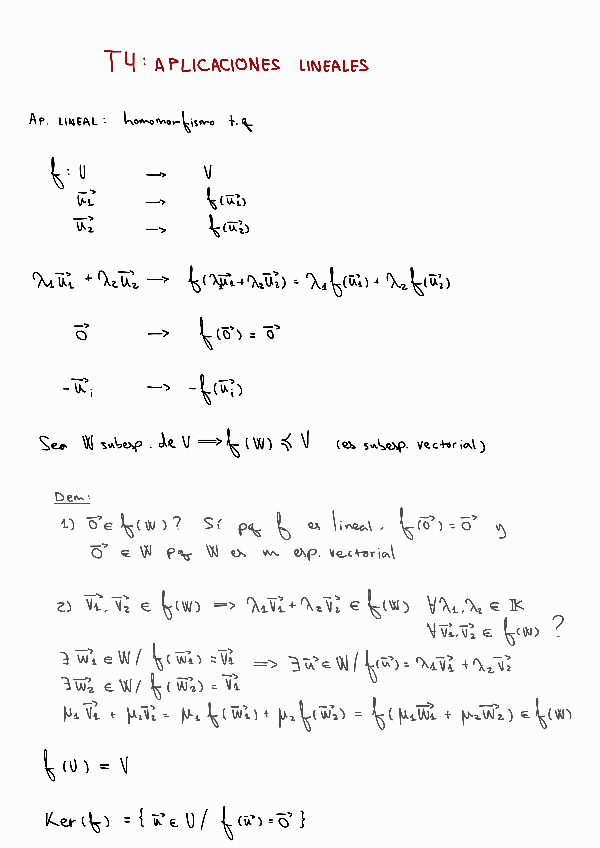 T4: APLICACIONES LINEALES
AP. LINEAL: homomorfismo t.q
f: U → V
u₁⃗ → f(u₁⃗)
u₂⃗ → f(u₂⃗)
λ₁u₁⃗ + λ₂u₂⃗ → f(λu₁⃗+λ₂u₂⃗) = λ₁f(u₁⃗) + λ₂f(u₂⃗)
0⃗ → f(0⃗) = 0⃗
-uᵢ⃗ → -f(uᵢ⃗)
Sea W subesp. de V ⟹ f(W) ≼ V (es subesp. vectorial)
Dem:
1) 0⃗ ∈ f(W)? Sí pq f es lineal. f(0⃗) = 0⃗ y
0⃗ ∈ W pq W es un esp. vectorial
2) v₁⃗, v₂⃗ ∈ f(W) ⟹ λ₁v₁⃗ + λ₂v₂⃗ ∈ f(W) ∀λ₁,λ₂ ∈ 𝕂
∀v₁⃗,v₂⃗ ∈ f(W) ?
∃w₁⃗ ∈ W / f(w₁⃗) = v₁⃗ ⟹ ∃u⃗ ∈ W / f(u⃗) = λ₁v₁⃗ + λ₂v₂⃗
∃w₂⃗ ∈ W / f(w₂⃗) = v₁⃗
μ₁v₁⃗ + μ₂v₂⃗ = μ₁f(w₁⃗) + μ₂f(w₂⃗) = f(μ₁w₁⃗ + μ₂w₂⃗) ∈ f(W)
f(U) = V
Ker(f) = { u⃗ ∈ U / f(u⃗) = 0⃗ }